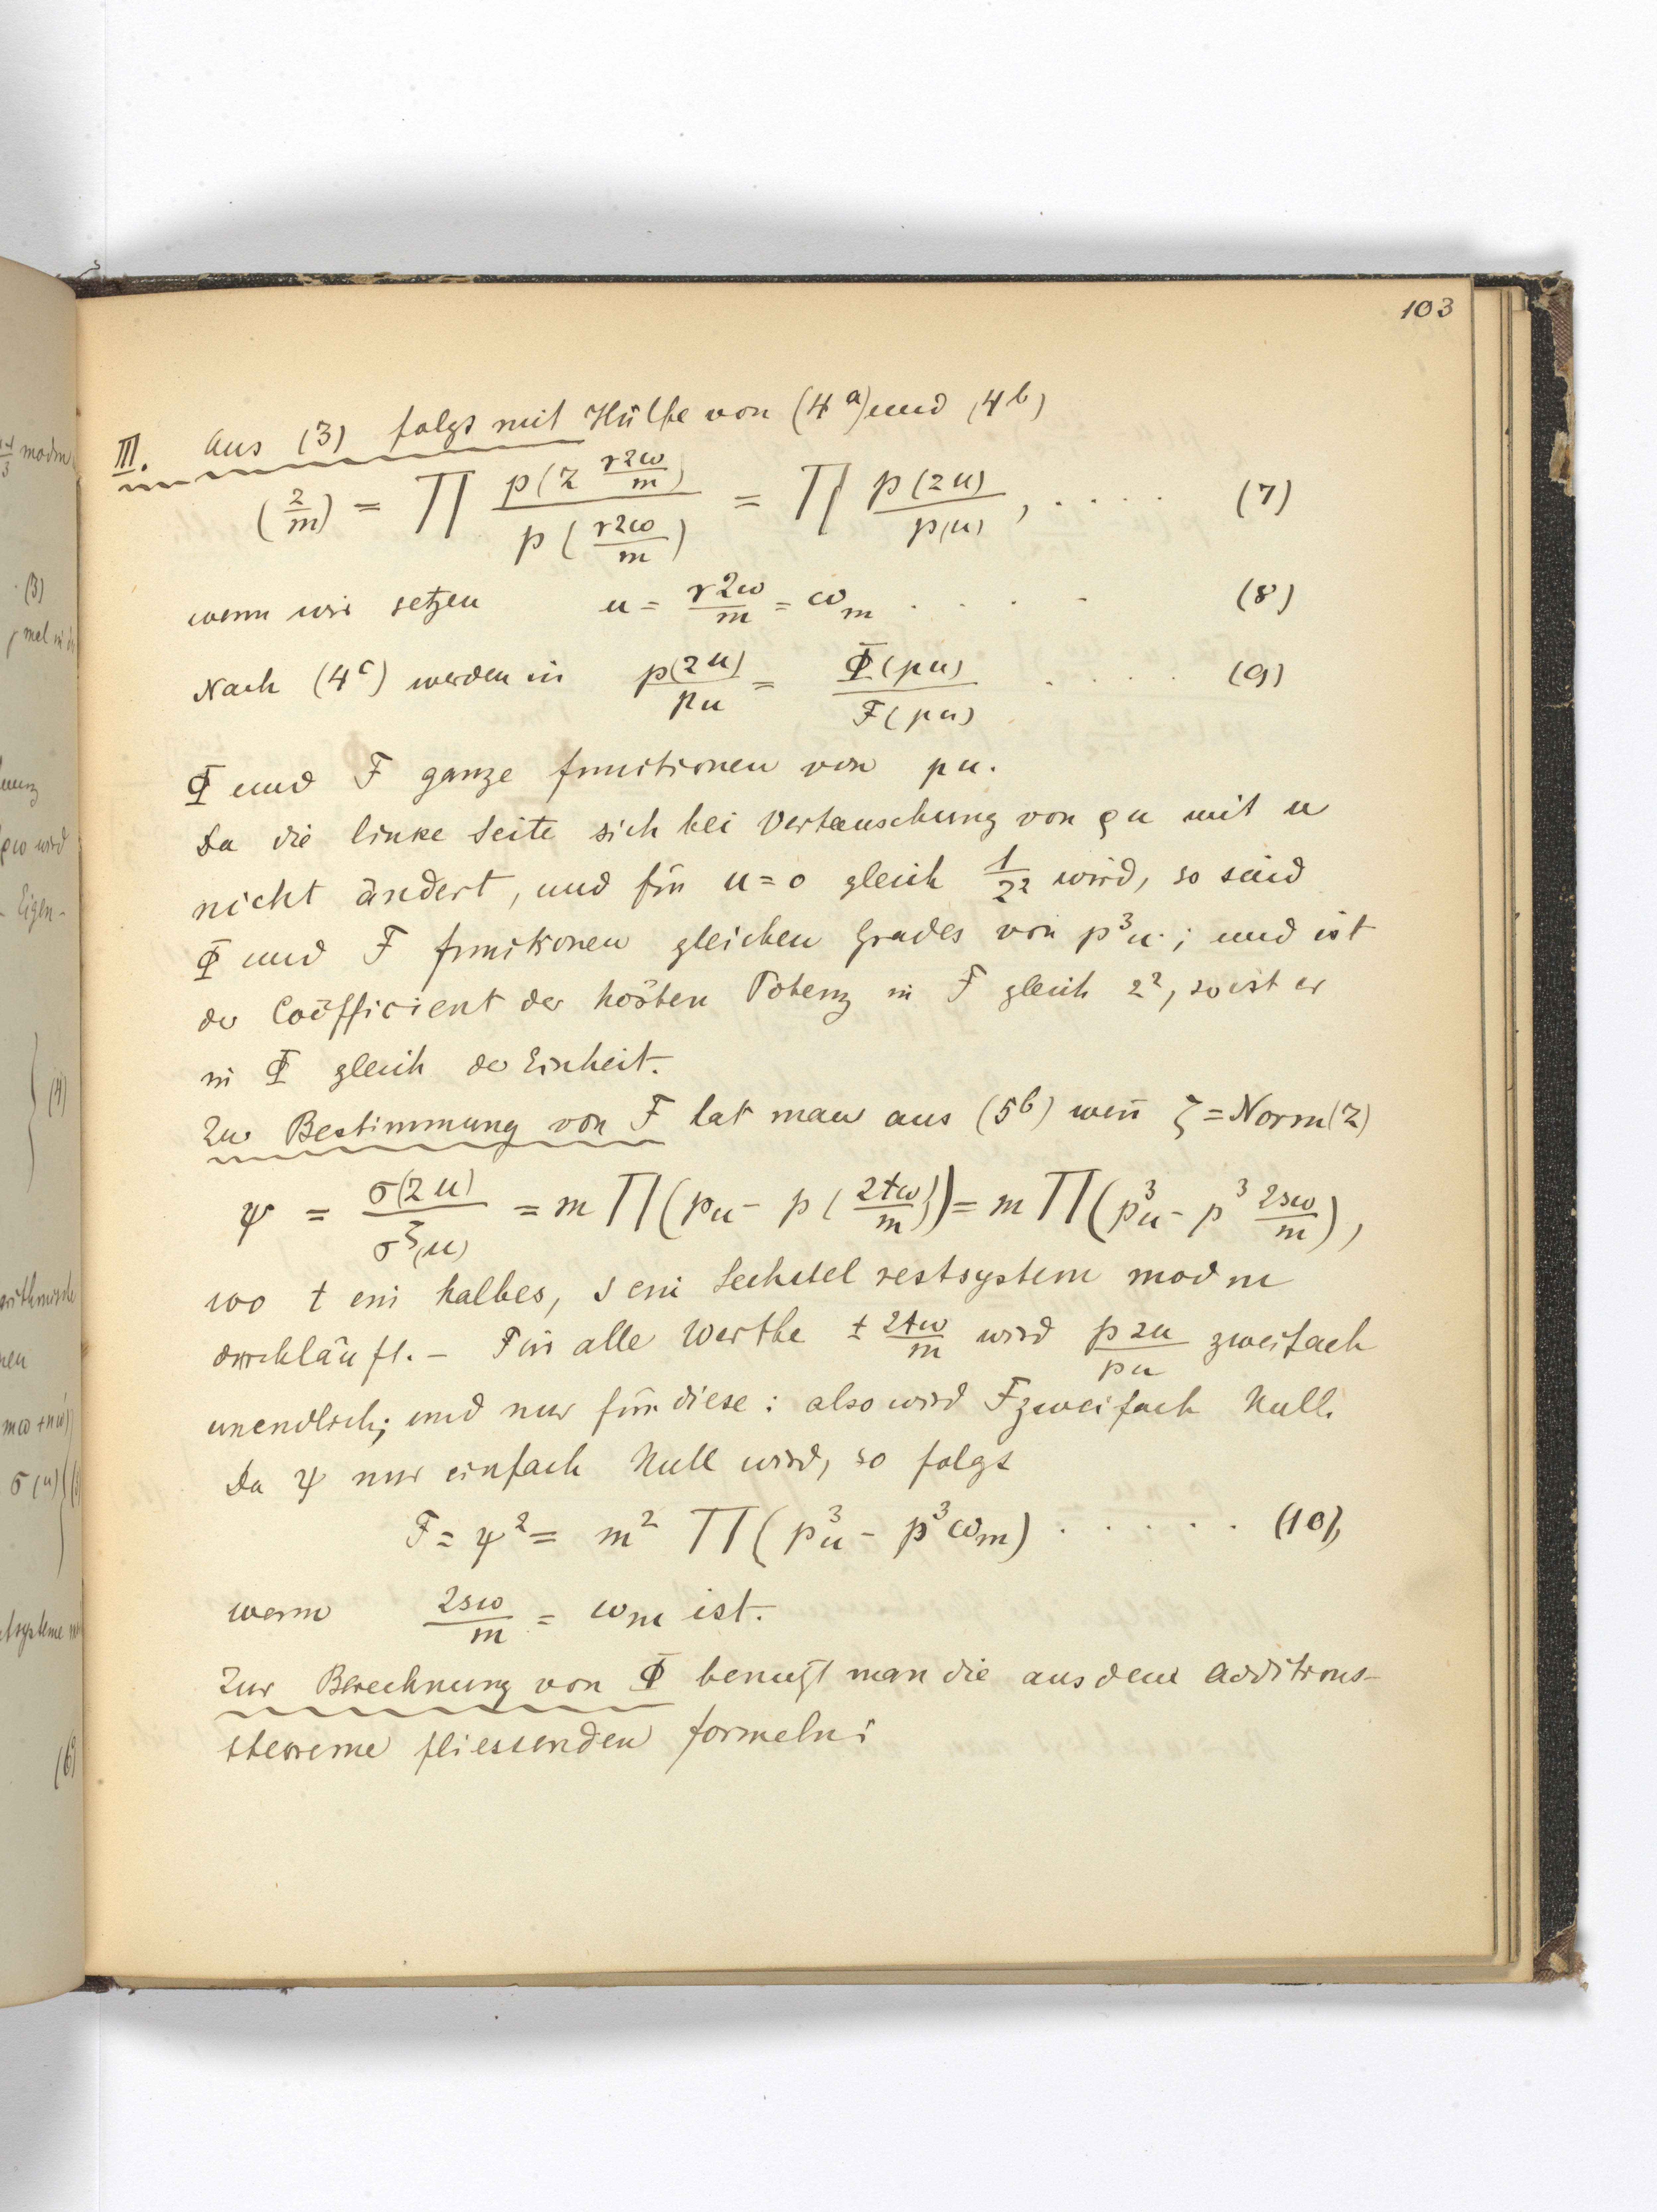 103
III. Aus (3) folgt mit Hülfe von (4a) und (4b)
(2/m) = ∏ p(2 r2ω/m) / p(r2ω/m) = ∏ p(2u)/p(u), . . . . (7)
wenn wir setzen u = r2ω/m = ω_m . . . . (8)
Nach (4c) werden in p(2u)/pu = Φ(pu)/F(pu) . . . . (9)
Φ und F ganze Functionen von pu.
Da die linke Seite sich bei Vertauschung von ϱu mit u
nicht ändert, und für u = 0 gleich 1/2² wird, so sind
Φ und F Funktionen gleichen Grades von p³u; und ist
der Coëfficient der hösten Potenz in F gleich 2², so ist er
in Φ gleich der Einheit.
Zur Bestimmung von F hat man aus (5b) weñ ζ = Norm(2)
ψ = σ(2u)/σ^ζ(u) = m ∏(pu - p(2tω/m)) = m ∏(p³u - p³ 2sω/m),
wo t ein halbes, s ein Sechstel restsystem mod m
durchläuft. – Für alle Werthe ± 2tω/m wird p2u/pu zweifach
unendlich; und nur für diese: also wird F zweifach Null.
Da ψ nur einfach Null wird, so folgt
F = ψ² = m² ∏(p³u - p³ω_m) . . . . . (10),
wenn 2sω/m = ω_m ist.
Zur Berechnung von Φ benutzt man die aus dem Additions-
theoreme fliessenden Formeln:
(3)
(4)
mod m
ϱω wird
- Eigen-
mω + nω'
σ(u)